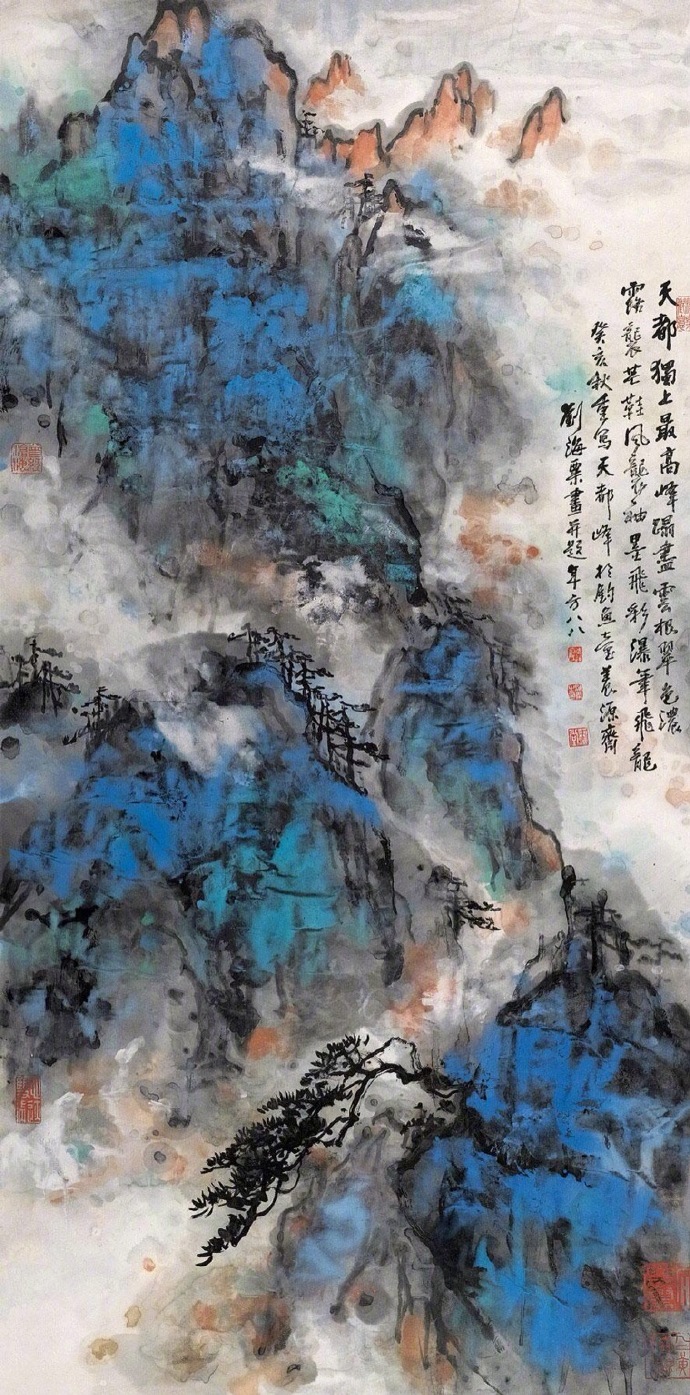 天都獨上最高峰踏盡雲根翠色濃
露襲芒鞋風龍衣袖墨飛彩瀑筆飛龍
癸亥秋重寫天都峰於釣魚臺養源齋
劉海粟畫并題年方八八